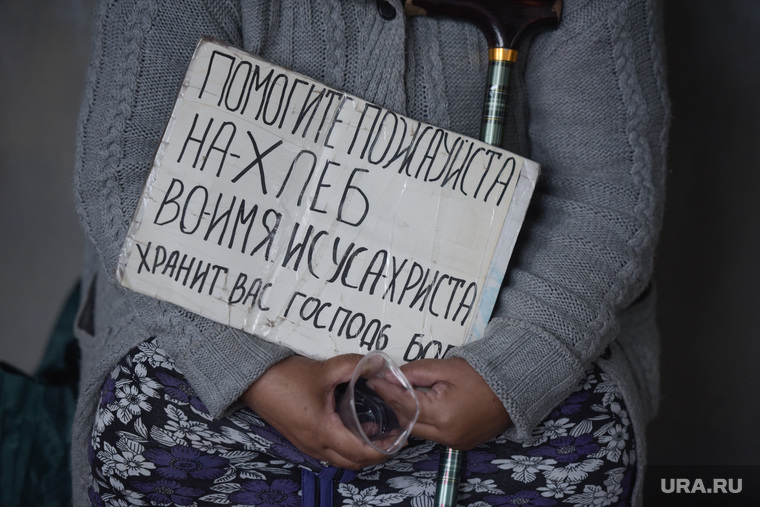 ПОМОГИТЕ ПОЖАУЙСТА
НА-ХЛЕБ
ВО-ИМЯ ИСУСА ХРИСТА
ХРАНИТ ВАС ГОСПОДЬ БОГ
URA.RU